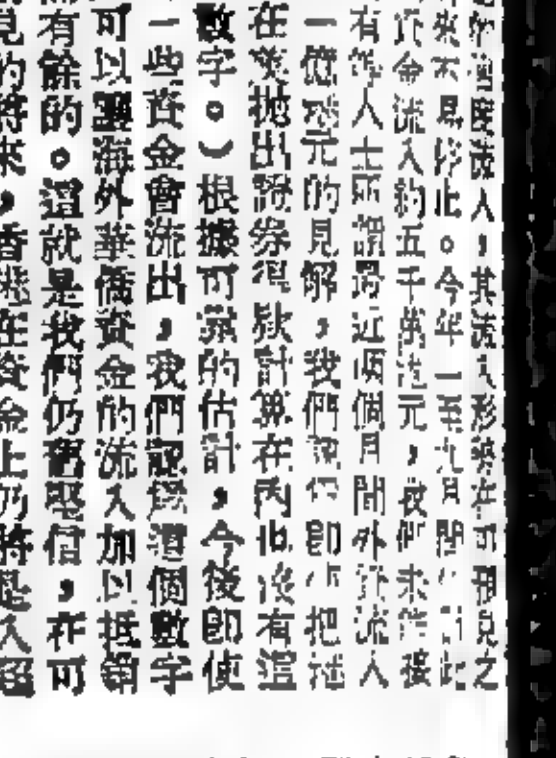 的過度流入，其流入形勢在可預見之
來不易停止。今年一至九月間
資金流入約五千萬港元，我們未能接
有些人士所謂最近兩個月間外資流入
一億港元的見解，我們認為即使把
在美拋出證券得款計算在內也沒有這
數字。）根據可靠的估計，今後即使
一些資金會流出，我們認為這個數字
可以讓海外華僑資金的流入加以抵銷
有餘的。這就是我們仍舊堅信，在可
見的將來，香港在資金上仍將是入超